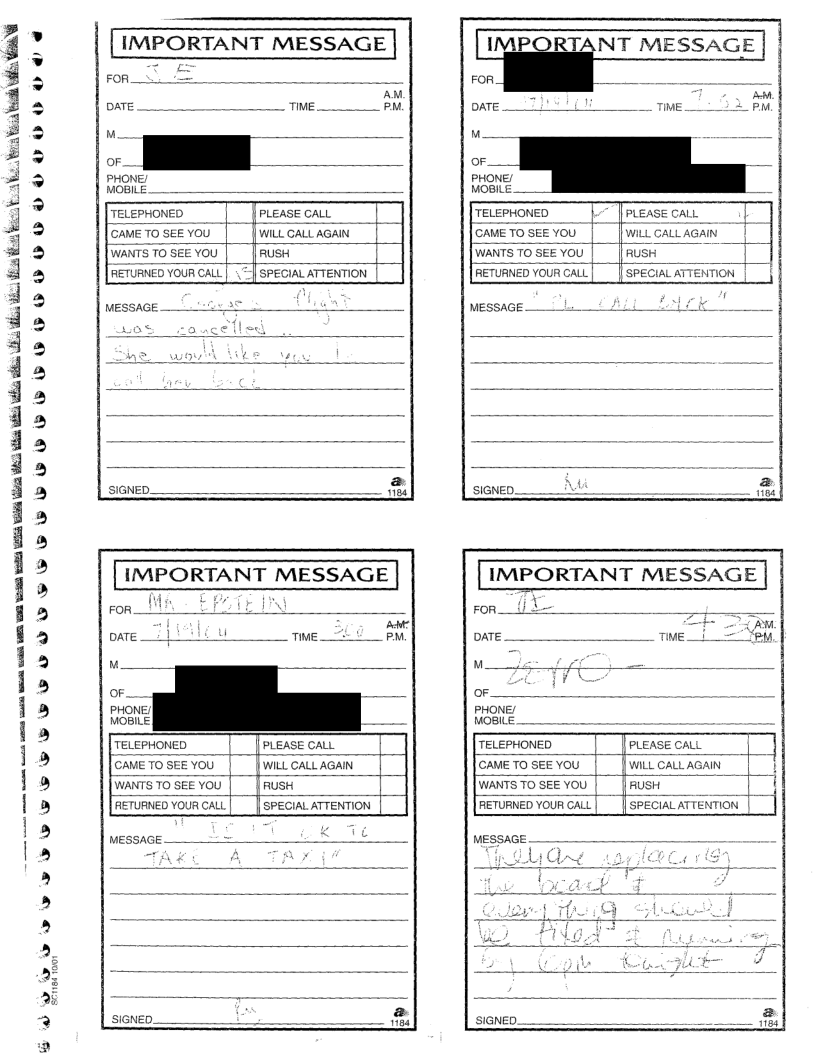 IMPORTANT MESSAGE
FOR J E
DATE TIME A.M. P.M.
M
OF
PHONE/
MOBILE
TELEPHONED PLEASE CALL
CAME TO SEE YOU WILL CALL AGAIN
WANTS TO SEE YOU RUSH
RETURNED YOUR CALL SPECIAL ATTENTION
MESSAGE flight
was cancelled ..
She would like you to
back
SIGNED
a
1184
IMPORTANT MESSAGE
FOR
DATE 7/19/04 TIME A.M. P.M.
M
OF
PHONE/
MOBILE
TELEPHONED PLEASE CALL
CAME TO SEE YOU WILL CALL AGAIN
WANTS TO SEE YOU RUSH
RETURNED YOUR CALL SPECIAL ATTENTION
MESSAGE " CALL BACK "
SIGNED
a
1184
IMPORTANT MESSAGE
FOR MR. EPSTEIN
DATE 7/19/04 TIME A.M. P.M.
M
OF
PHONE/
MOBILE
TELEPHONED PLEASE CALL
CAME TO SEE YOU WILL CALL AGAIN
WANTS TO SEE YOU RUSH
RETURNED YOUR CALL SPECIAL ATTENTION
MESSAGE " IS IT OK TO
TAKE A TAXI"
SIGNED
a
1184
IMPORTANT MESSAGE
FOR
DATE TIME 4 30 A.M. P.M.
M
OF
PHONE/
MOBILE
TELEPHONED PLEASE CALL
CAME TO SEE YOU WILL CALL AGAIN
WANTS TO SEE YOU RUSH
RETURNED YOUR CALL SPECIAL ATTENTION
MESSAGE
They are replacing
the board &
everything should
be fixed & running
by 6pm tonight
SIGNED
a
1184
SC1184 10/01